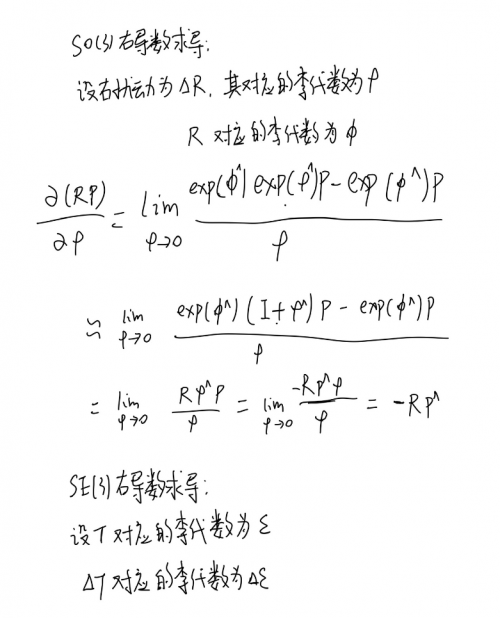 SO(3)右导数求导:
设右扰动为ΔR, 其对应的李代数为φ
R 对应的李代数为ϕ
∂(RP)/∂φ = lim φ→0 (exp(ϕ^)exp(φ^)P - exp(ϕ^)P)/φ
≈ lim φ→0 (exp(ϕ^)(I+φ^)P - exp(ϕ^)P)/φ
= lim φ→0 Rφ^P/φ = lim φ→0 -RP^φ/φ = -RP^
SE(3)右导数求导:
设T对应的李代数为ξ
ΔT对应的李代数为Δξ